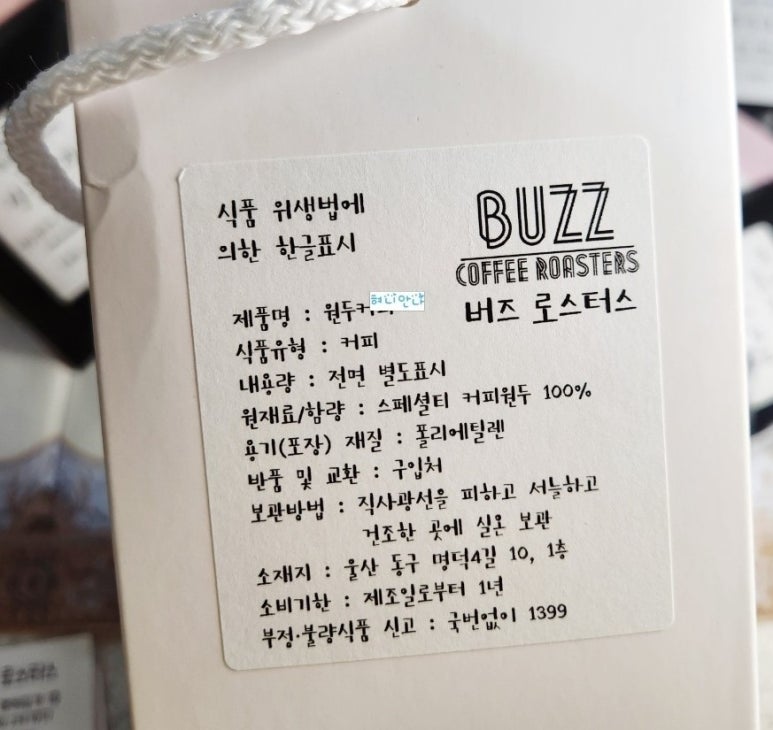 식품 위생법에
의한 한글표시
BUZZ
COFFEE ROASTERS
버즈 로스터스
제품명 : 원두커피
식품유형 : 커피
내용량 : 전면 별도표시
원재료/함량 : 스페셜티 커피원두 100%
용기(포장) 재질 : 폴리에틸렌
반품 및 교환 : 구입처
보관방법 : 직사광선을 피하고 서늘하고
건조한 곳에 실온 보관
소재지 : 울산 동구 명덕4길 10, 1층
소비기한 : 제조일로부터 1년
부정·불량식품 신고 : 국번없이 1399
로스터스